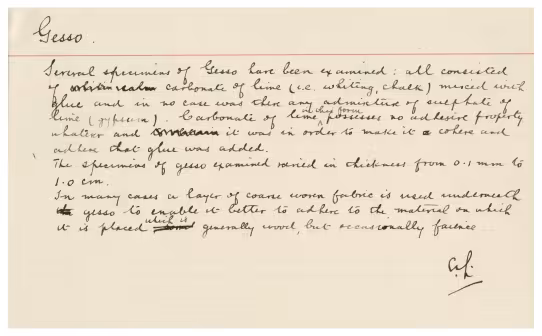 Gesso.
Several specimens of Gesso have been examined: all consisted
of carbonate of lime (i.e. whiting, chalk) mixed with
glue and in no case was there any admixture of sulphate of
lime (gypsum). Carbonate of lime in this form possesses no adhesive property
whatever and it was in order to make it cohere and
adhere that glue was added.
The specimens of gesso examined varied in thickness from 0.1 mm to
1.0 cm.
In many cases a layer of coarse woven fabric is used underneath
gesso to enable it better to adhere to the material on which
it is placed which is generally wood, but occasionally faience